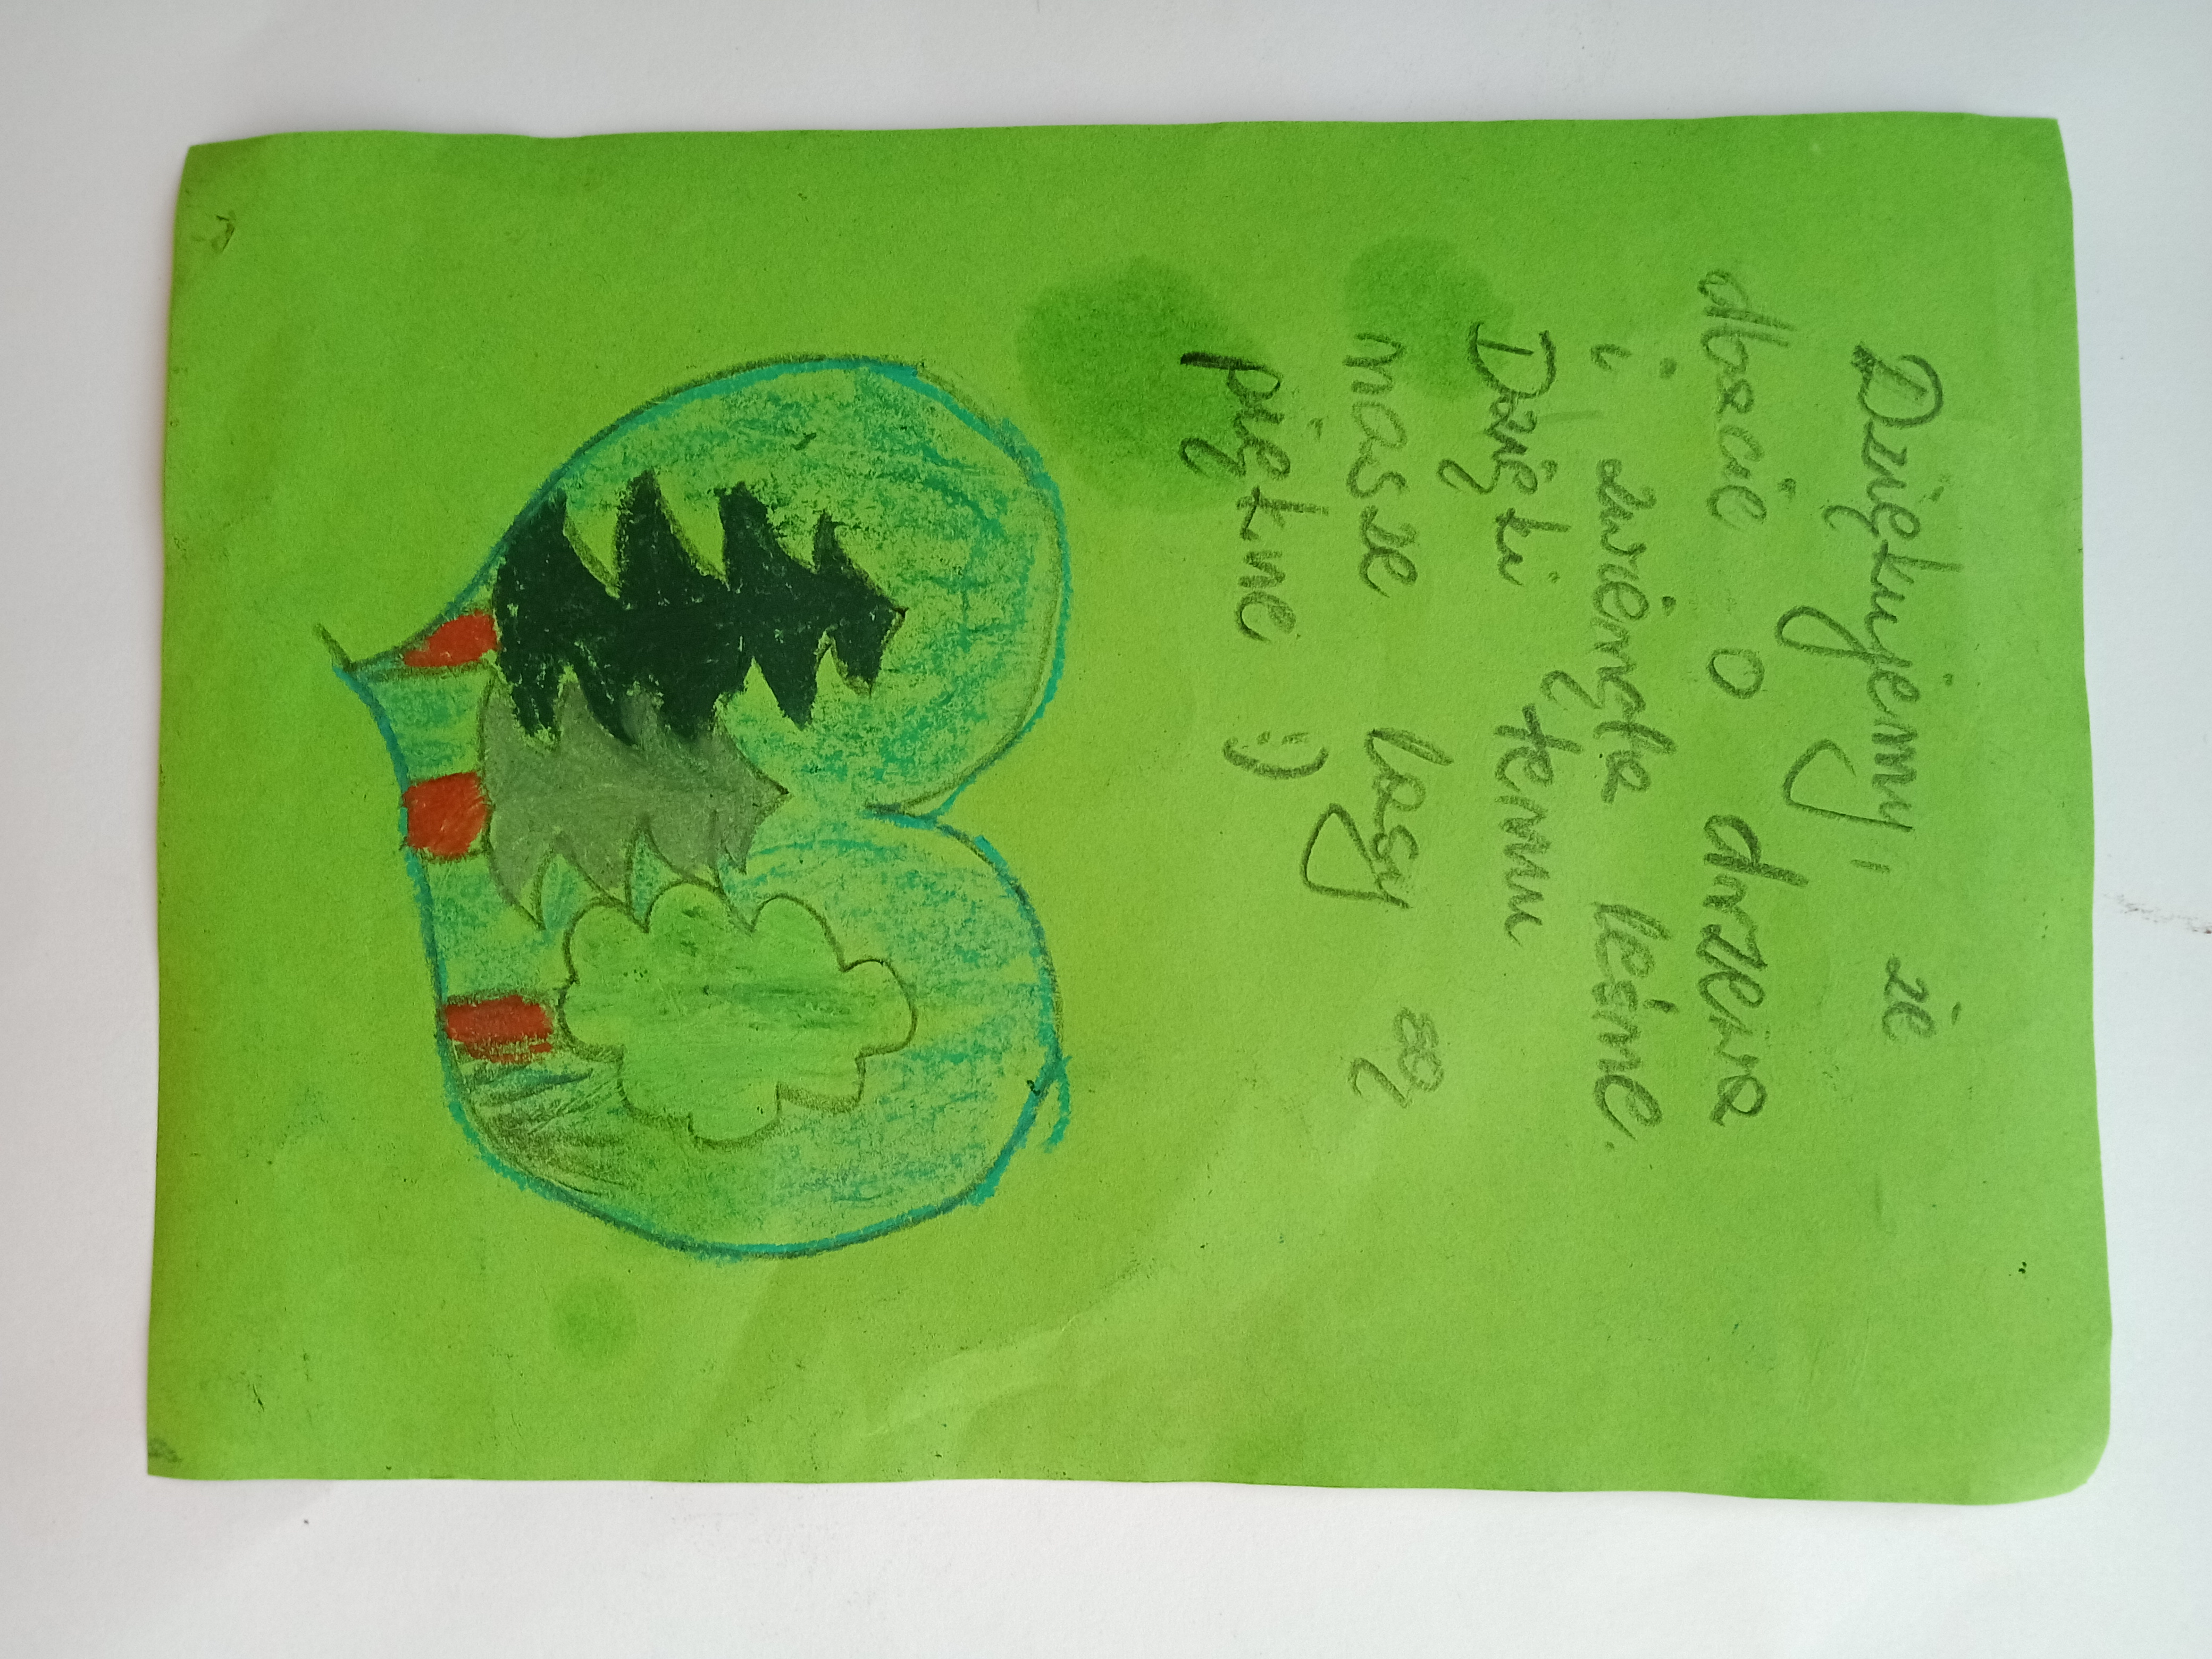 Dziękujemy, że
dbacie o drzewa
i zwierzęta leśne.
Dzięki temu
nasze lasy są
piękne :)